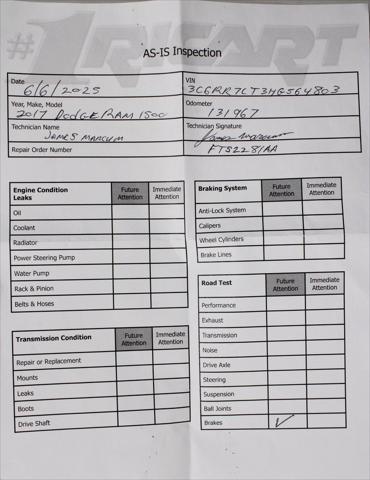 #1 RICART
AS-IS Inspection
Date 6/6/2025
VIN 3C6RR7CT3HG564803
Year, Make, Model 2017 DODGE RAM 1500
Odometer 131967
Technician Name JAMES MARCUM
Technician Signature James Marcum
Repair Order Number FTS2281AA
Engine Condition Leaks Future Attention Immediate Attention
Oil
Coolant
Radiator
Power Steering Pump
Water Pump
Rack & Pinion
Belts & Hoses
Transmission Condition Future Attention Immediate Attention
Repair or Replacement
Mounts
Leaks
Boots
Drive Shaft
Braking System Future Attention Immediate Attention
Anti-Lock System
Calipers
Wheel Cylinders
Brake Lines
Road Test Future Attention Immediate Attention
Performance
Exhaust
Transmission
Noise
Drive Axle
Steering
Suspension
Ball Joints
Brakes ✓